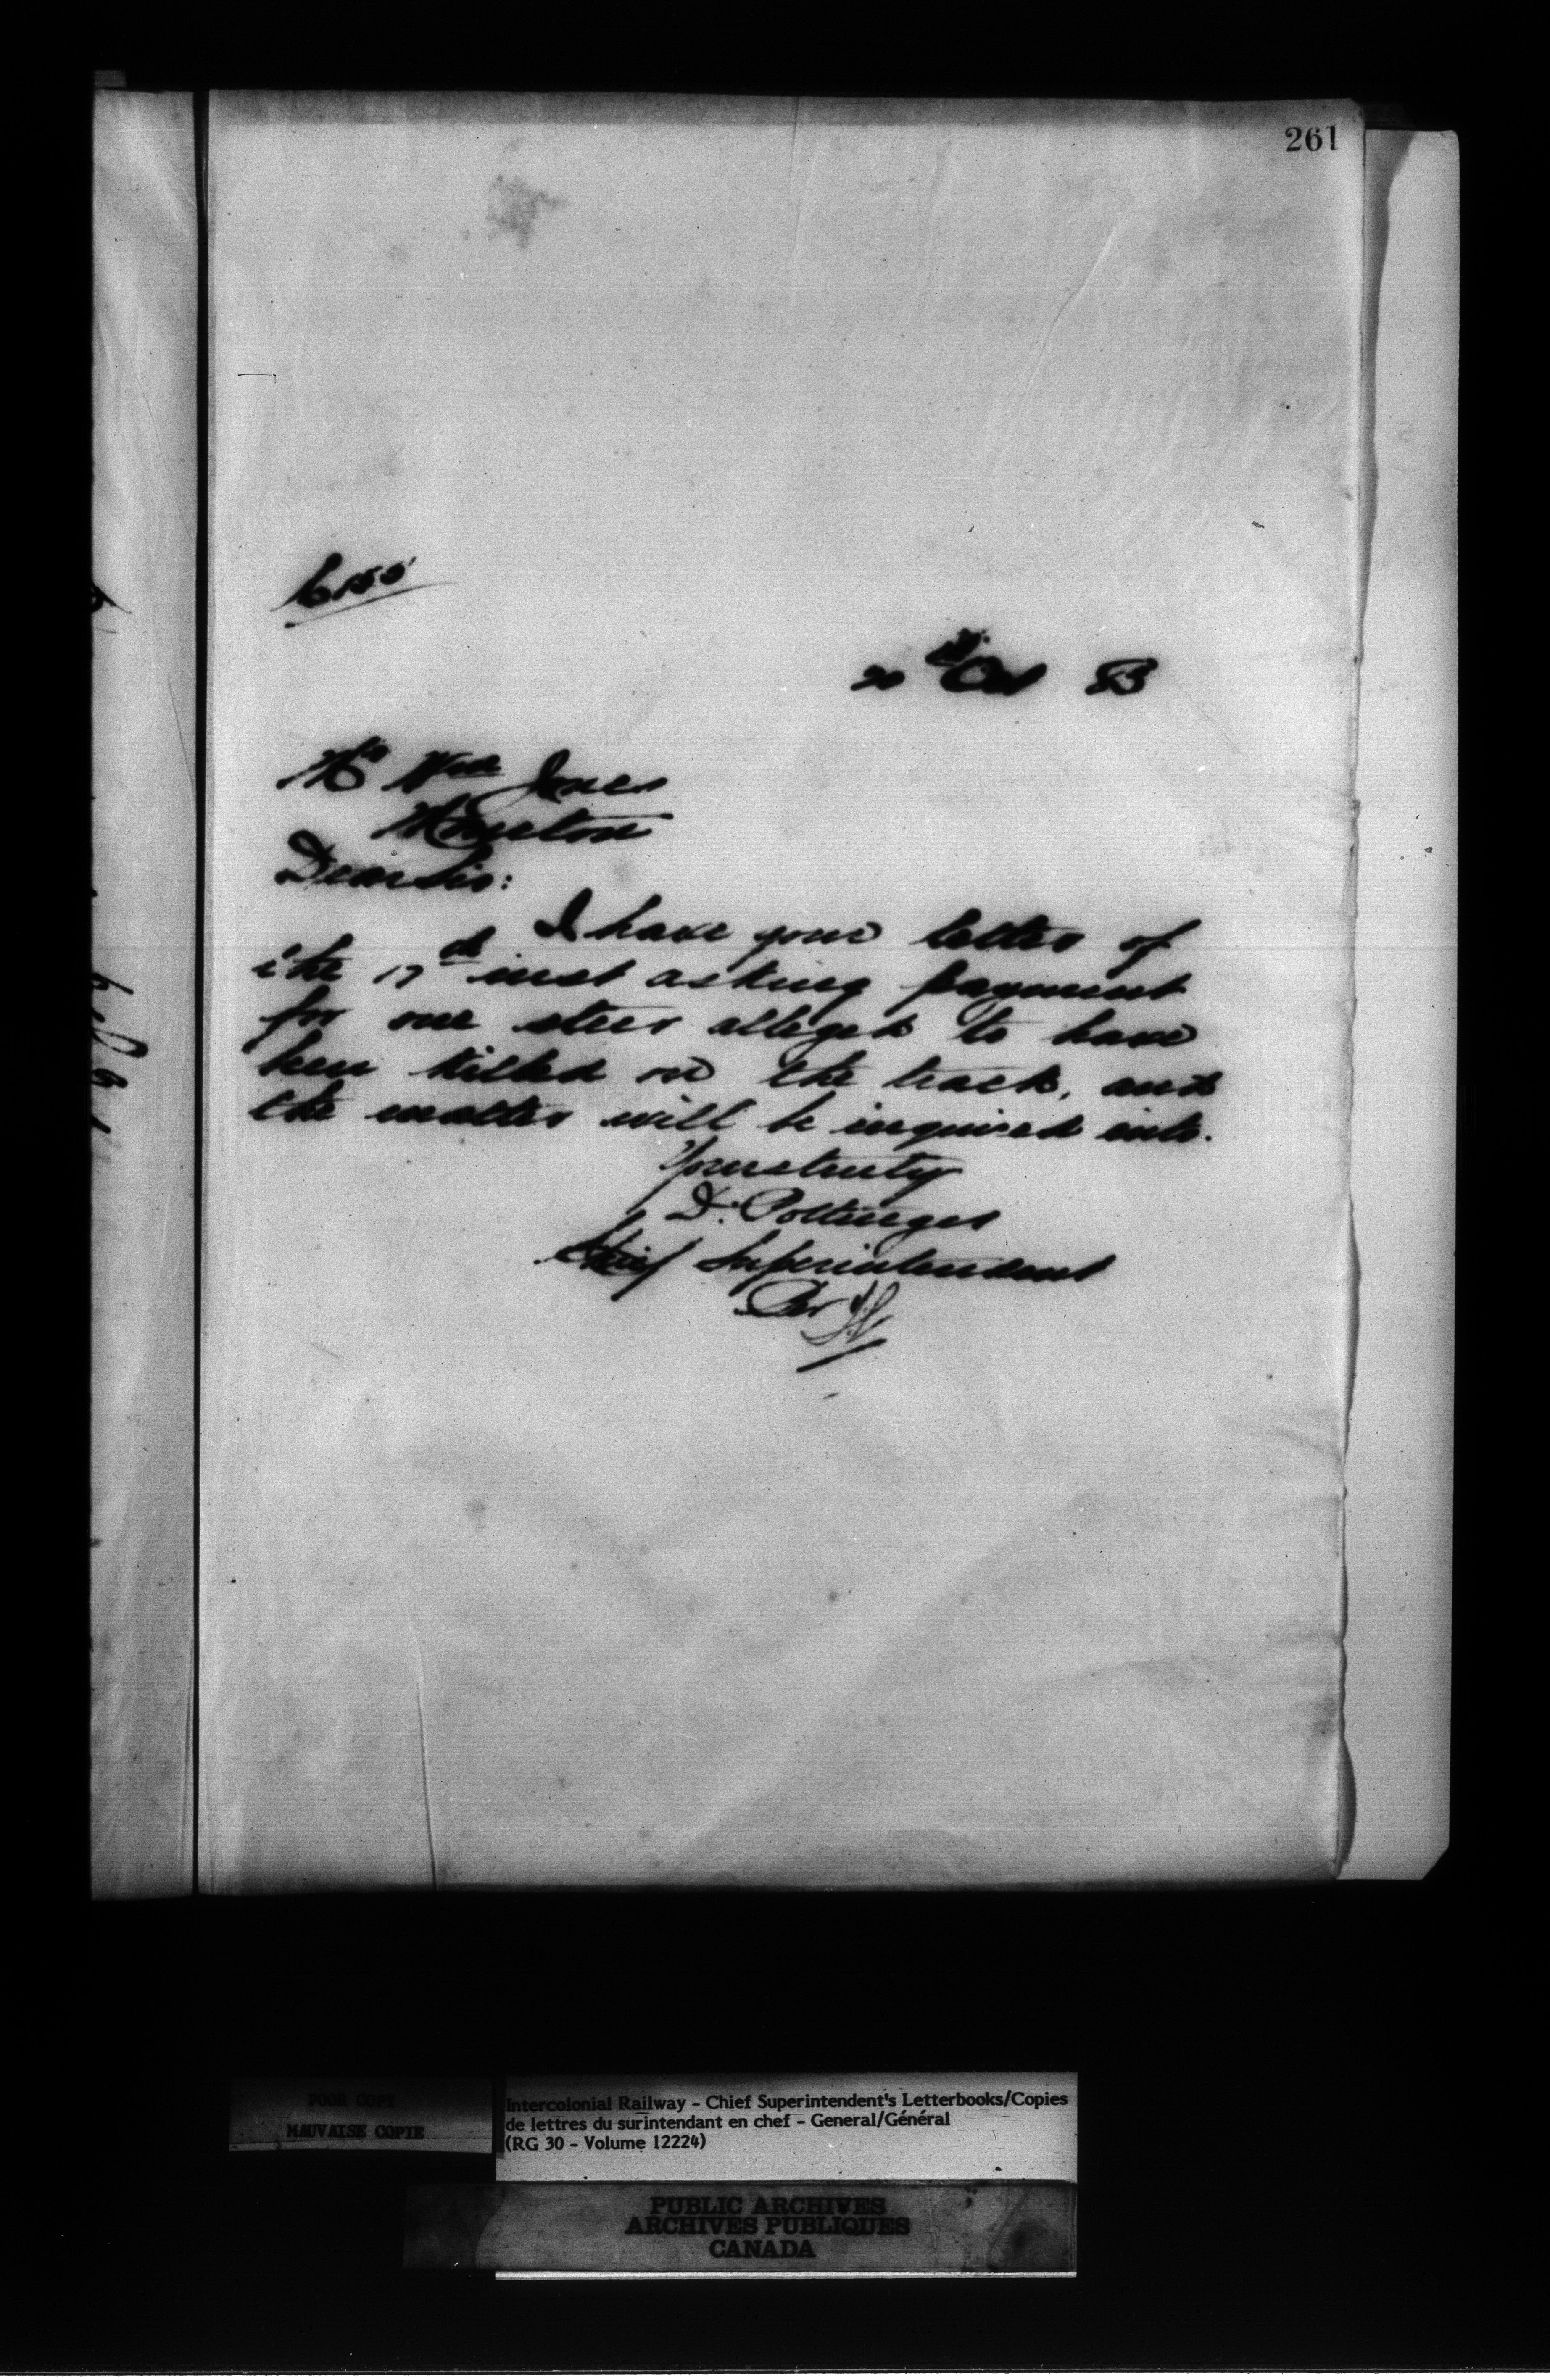 261
6155
20th Oct 83
Mr Wm Jones
Dear Sir:
I have your letter of
the 17th inst asking payment
for one steer alleged to have
been killed on the track, and
the matter will be inquired into.
Yours truly
D. Pottinger
Chief Superintendent
Per
POOR COPY
MAUVAISE COPIE
Intercolonial Railway - Chief Superintendent's Letterbooks/Copies
de lettres du surintendant en chef - General/Général
(RG 30 - Volume 12224)
PUBLIC ARCHIVES
ARCHIVES PUBLIQUES
CANADA